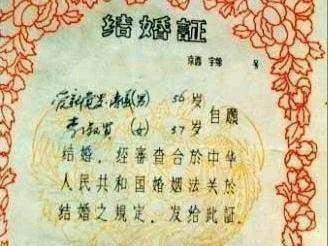 结婚証
字第 号
爱新觉罗·溥仪(男) 56岁
李淑贤(女) 37岁 自愿
结婚，经審查合於中华
人民共和国婚姻法关於
结婚之規定，发给此証。